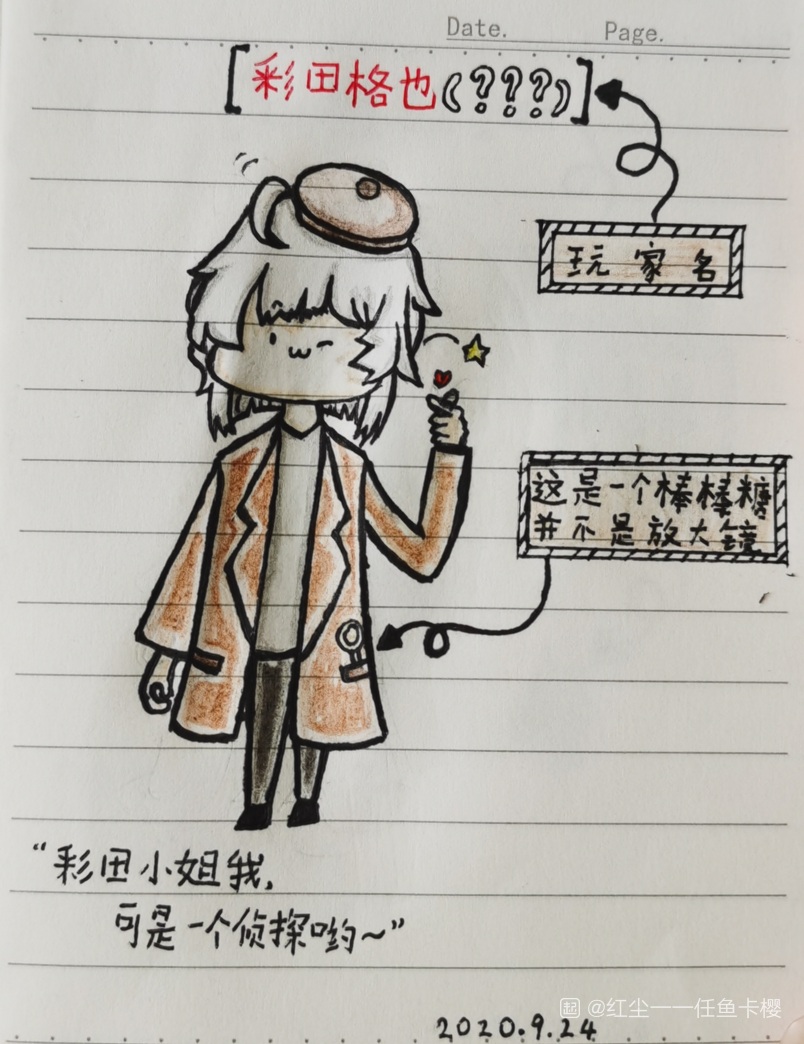 Date. Page.
[彩田格也(???)]
玩家名
这是一个棒棒糖
并不是放大镜
“彩田小姐我,
可是一个侦探哟~”
2020.9.24
起 @红尘一一任鱼卡樱